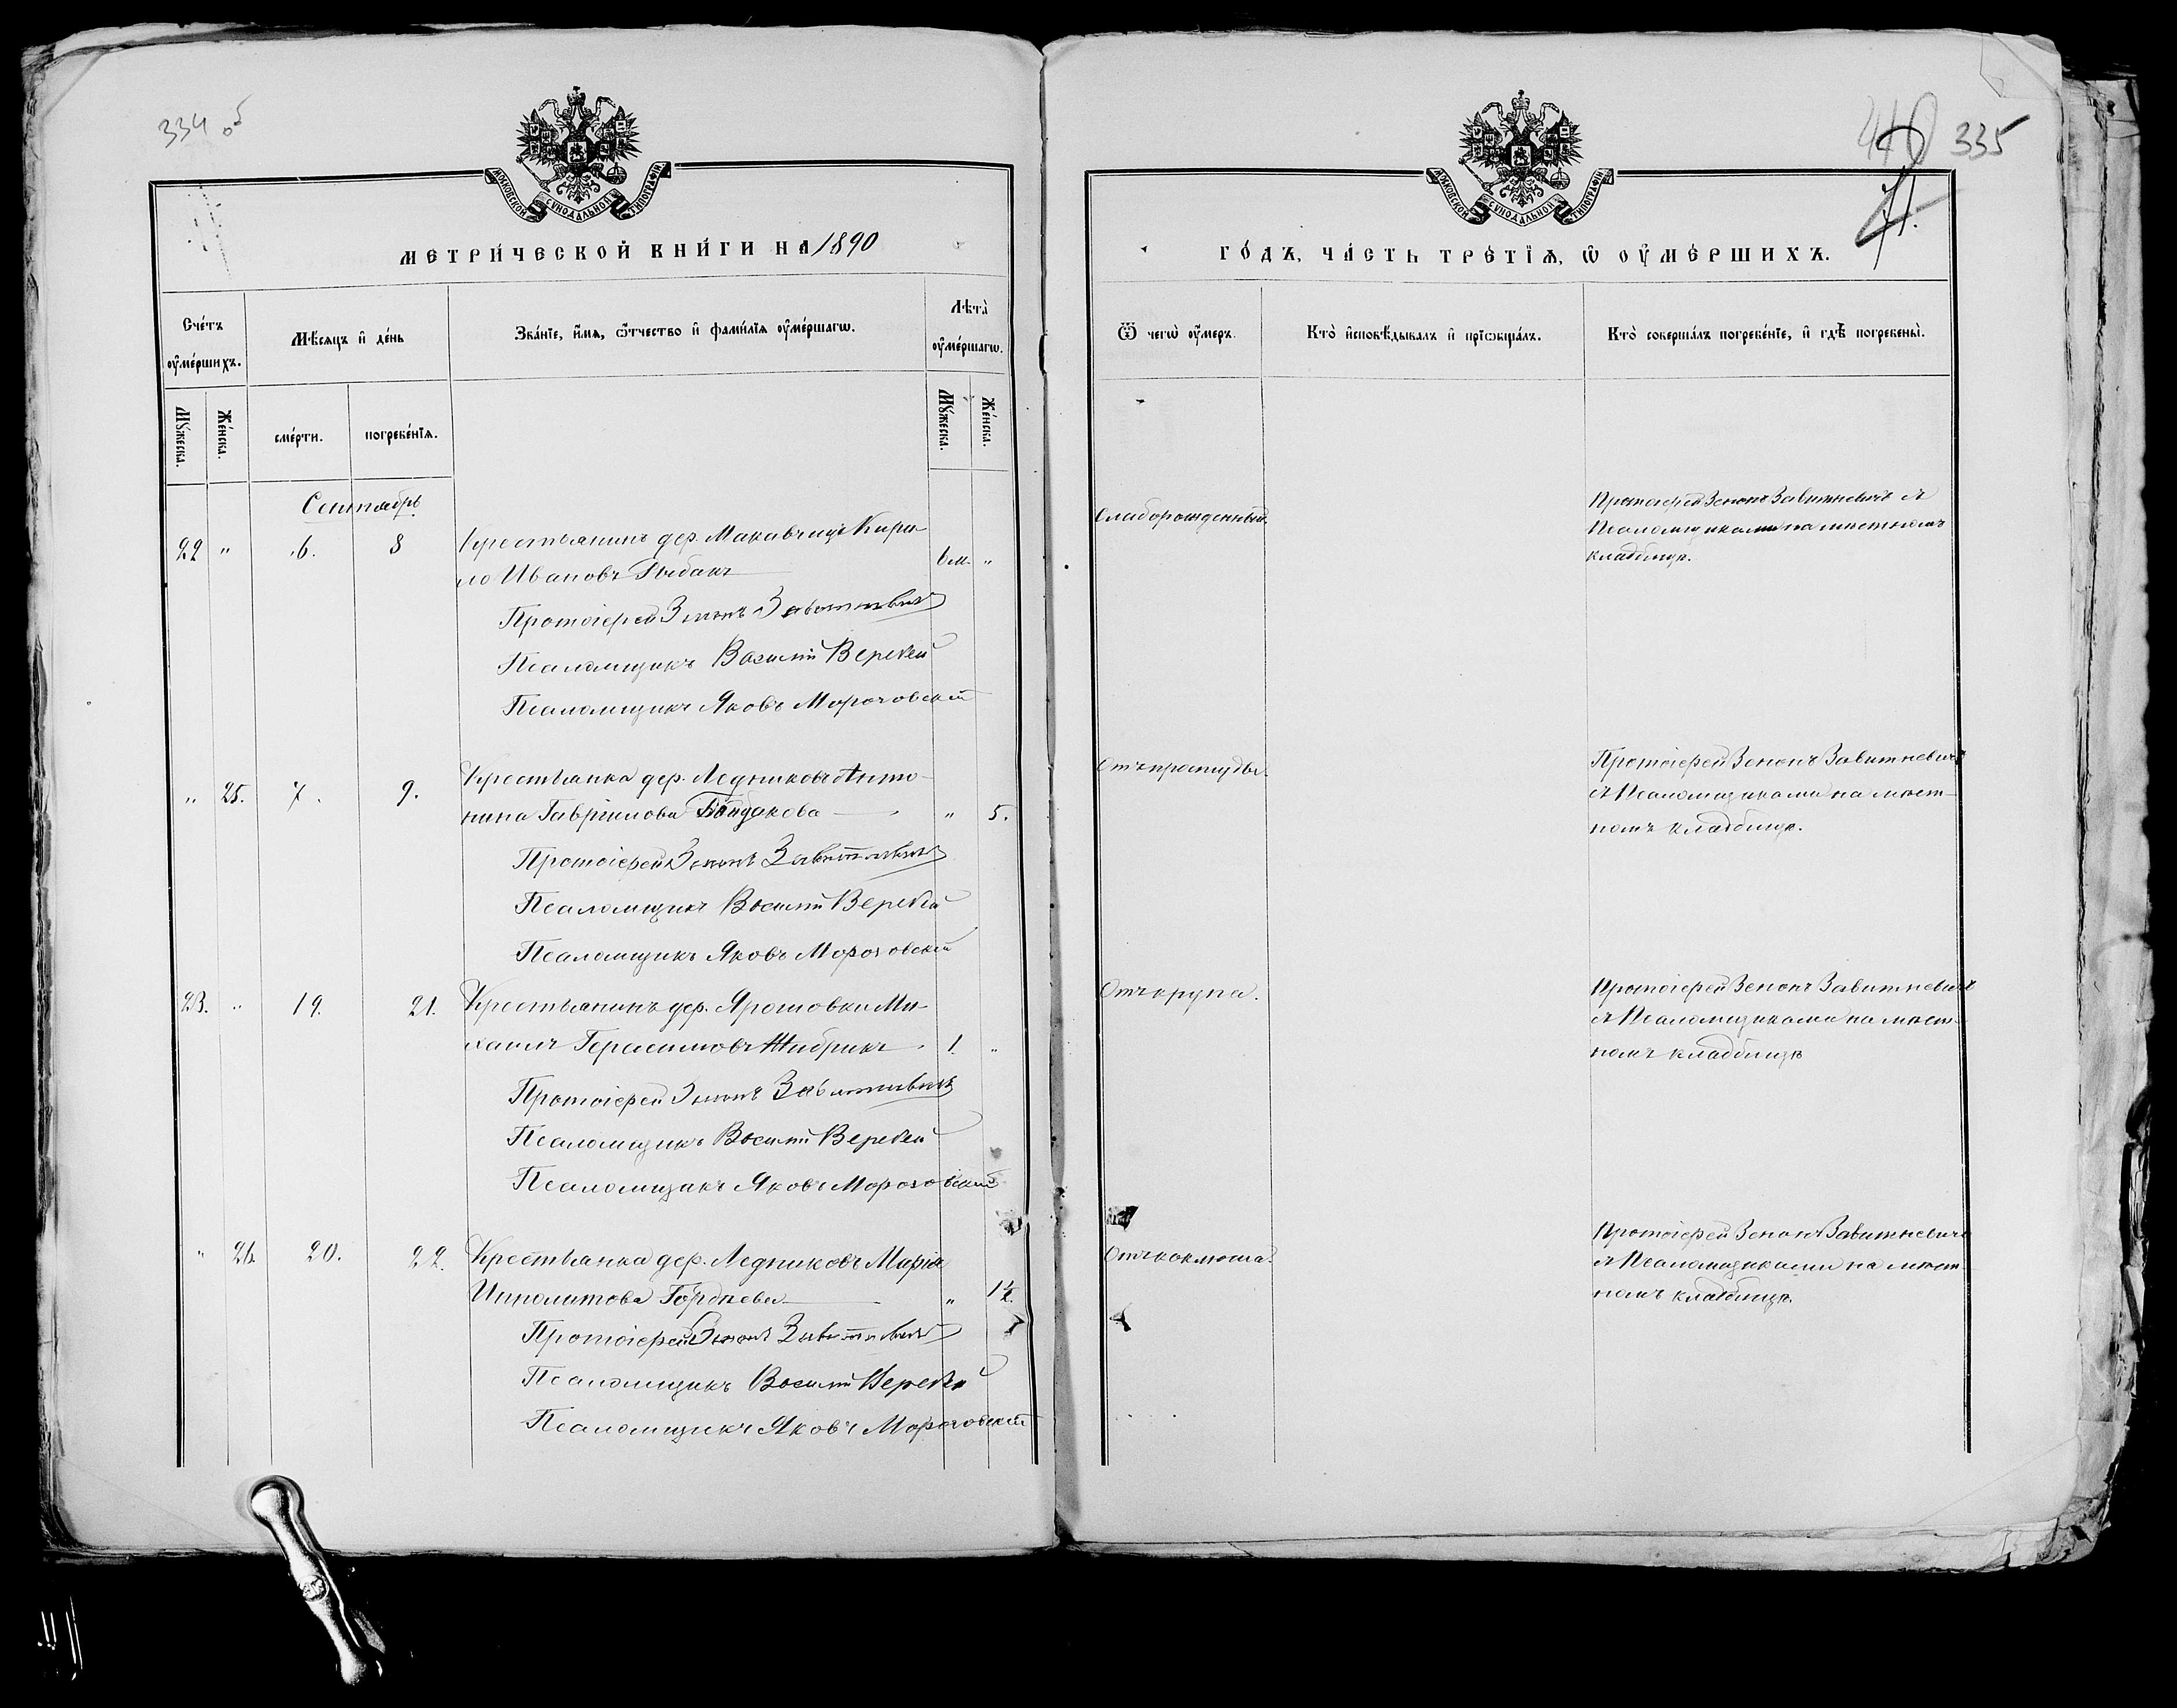 334 об
МОСКОВСКОЙ СѴНОДАЛЬНОЙ ТИПОГРАФІИ
МЕТРИ́ЧЕСКОЙ КНИ́ГИ НА 1890
Сче́тъ оу҆ме́ршихъ.
Мѣ́сяцъ и҆ де́нь
Зва́нїе, и҆́мѧ, ѻ҆́тчество и҆ фами́лїѧ оу҆ме́ршагѡ.
Лѣ́та оу҆ме́ршагѡ.
Мꙋ́жеска.
Же́нска.
сме́рти.
погребе́нїѧ.
Мꙋ́жеска.
Же́нска.
Сентябрь
22 " 6. 8 Крестьянинъ дер. Макавчицъ Кири-
ло Ивановъ Рыбакъ 6 м. "
Протоіерей Зенонъ Завитневичъ
Псаломщикъ Василій Веребей
Псаломщикъ Яковъ Морочовскій
" 25. 7. 9. Крестьянка дер. Ледниковъ Анто-
нина Гаврилова " 5.
Протоіерей Зенонъ Завитневичъ
Псаломщикъ Василій Веребей
Псаломщикъ Яковъ Морочовскій
23. " 19. 21. Крестьянинъ дер. Ярошовки Ми-
хаилъ Герасимовъ Жабрикъ 1. "
Протоіерей Зенонъ Завитневичъ
Псаломщикъ Василій Веребей
Псаломщикъ Яковъ Морочовскій
" 26. 20. 22. Крестьянка дер. Ледниковъ Марія
Ипполитова Гордѣева " 1½.
Протоіерей Зенонъ Завитневичъ
Псаломщикъ Василій Веребей
Псаломщикъ Яковъ Морочовскій
335
71.
МОСКОВСКОЙ СѴНОДАЛЬНОЙ ТИПОГРАФІИ
ГО́ДЪ, ЧА́СТЬ ТРЕ́ТЇѦ, Ѡ҆ ОУ҆МЕ́РШИХЪ.
Ѿ чегѡ̀ оу҆́меръ.
Кто̀ и҆сповѣ́дывалъ и҆ прїѡбща́лъ.
Кто̀ соверша́лъ погребе́нїе, и҆ гдѣ̀ погребены̀.
Слаборожденный.
Протоіерей Зенонъ Завитневичъ съ
Псаломщиками на мѣстномъ
кладбищѣ.
Отъ простуды.
Протоіерей Зенонъ Завитневичъ
съ Псаломщиками на мѣст-
номъ кладбищѣ.
Отъ крупа.
Протоіерей Зенонъ Завитневичъ
съ Псаломщиками на мѣст-
номъ кладбищѣ
Отъ коклюша.
Протоіерей Зенонъ Завитневичъ
съ Псаломщиками на мѣст-
номъ кладбищѣ.